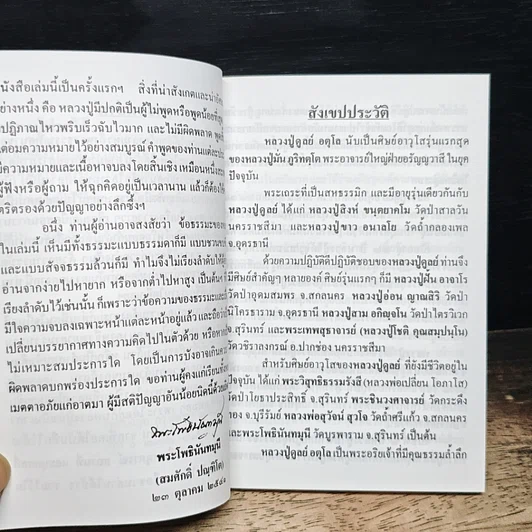 นังสือเล่มนี้เป็นครั้งแรกฯ สิ่งที่น่าสังเกตและน่าอั
ย่างหนึ่ง คือ หลวงปู่มีปกติเป็นผู้ไม่พูดหรือพูดน้อยที่
ปฏิภาณไหวพริบเร็วฉับไวมาก และไม่มีผิดพลาด พูดสั้
ต่อมความหมายไว้อย่างสมบูรณ์ คำพูดของท่านแต่ละป
ีความหมายและเนื้อหาจบลงโดยสิ้นเชิง เหมือนหนึ่งส
ผู้ฟังหรือผู้ถาม ให้ฉุกคิดอยู่เป็นเวลานาน แล้วก็ต้องใ
ตริตรองด้วยปัญญาอย่างลึกซึ้งฯ
อนึ่ง ท่านผู้อ่านอาจสงสัยว่า ข้อธรรมะของหล
ในเล่มนี้ เห็นมีทั้งธรรมะแบบธรรมดาก็มี แบบชวนขบ
และแบบสัจจธรรมล้วนก็มี ทำไมจึงไม่เรียงลำดับไว้ให้
อ่านจากง่ายไปหายาก หรือจากต่ำไปหาสูง เป็นต้น ฯ
เรียงลำดับไว้เช่นนั้น ก็เพราะว่าข้อความของธรรมะแต่ละ
มีใจความจบลงเฉพาะหน้าแต่ละหน้าอยู่แล้ว และถือว่าเป็น
เปลี่ยนบรรยากาศทางความคิดไปในตัวด้วย หรือหาก
ไม่เหมาะสมประการใด โดยเป็นการบังอาจเกินควร
ผิดพลาดบกพร่องประการใด ขอท่านผู้คงแก่เรียนทั้ง
เมตตาอภัยแก่อาตมา ผู้มีสติปัญญาอันน้อยนิดนี้ด้วยเถิด
พระโพธินันทมุนี
พระโพธินันทมุนี
(สมศักดิ์ ปณฺฑิโต)
๒๓ ตุลาคม ๒๕๔๑
สังเขปประวัติ
หลวงปู่ดูลย์ อตุโล นับเป็นศิษย์อาวุโสรุ่นแรกสุด
ของหลวงปู่มั่น ภูริทตฺโต พระอาจารย์ใหญ่ฝ่ายอรัญญวาสี ในยุค
ปัจจุบัน
พระเถระที่เป็นสหธรรมมิก และมีอายุรุ่นเดียวกันกับ
หลวงปู่ดูลย์ ได้แก่ หลวงปู่สิงห์ ขนฺตยาคโม วัดป่าสาลวัน
นครราชสีมา และหลวงปู่ขาว อนาลโย วัดถ้ำกลองเพล
จ.อุดรธานี
ด้วยความปฏิบัติดีปฏิบัติชอบของหลวงปู่ดูลย์ ท่านจึง
มีศิษย์สำคัญๆ หลายองค์ ศิษย์รุ่นแรกๆ ก็มี หลวงปู่ฝั้น อาจาโร
วัดป่าอุดมสมพร จ.สกลนคร หลวงปู่อ่อน ญาณสิริ วัดป่า
นิโครธาราม จ.อุดรธานี หลวงปู่สาม อกิญฺจโน วัดป่าไตรวิเวก
จ.สุรินทร์ และพระเทพสุธาจารย์ (หลวงปู่โชติ คุณสมฺปนฺโน)
วัดวชิราลงกรณ์ อ.ปากช่อง นครราชสีมา
สำหรับศิษย์อาวุโสของหลวงปู่ดูลย์ ที่ยังมีชีวิตอยู่ใน
ปัจจุบัน ได้แก่ พระวิสุทธิธรรมรังสี (หลวงพ่อเปลี่ยน โอภาโส)
วัดป่าโยธาประสิทธิ์ จ.สุรินทร์ พระชินวงศาจารย์ วัดกระดึง
ทอง จ.บุรีรัมย์ หลวงพ่อสุวัจน์ สุวโจ วัดถ้ำศรีแก้ว จ.สกลนคร
และพระโพธินันทมุนี วัดบูรพาราม จ.สุรินทร์ เป็นต้น
หลวงปู่ดูลย์ อตุโล เป็นพระอริยเจ้าที่มีคุณธรรมล้ำลึก